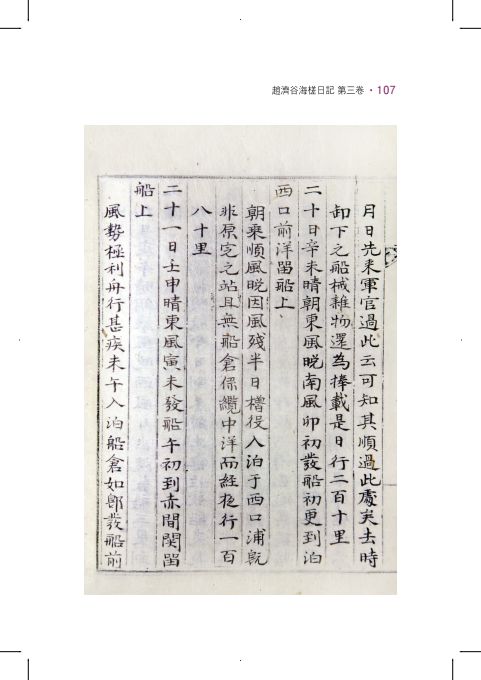 趙濟谷海槎日記 第三卷 · 107
月日先來軍官過此云可知其順過此處矣去時
卸下之船械雜物還爲捧載是日行二百十里
二十日辛未晴朝東風晩南風卯初發船初更到泊
西口前洋留船上
朝乘順風晩因風殘半日櫓役入泊于西口浦旣
非原定之站且無船倉係纜中洋而經夜行一百
八十里
二十一日壬申晴東風寅末發船午初到赤間関留
船上
風勢極利舟行甚疾未午入泊船倉如鄕發船前